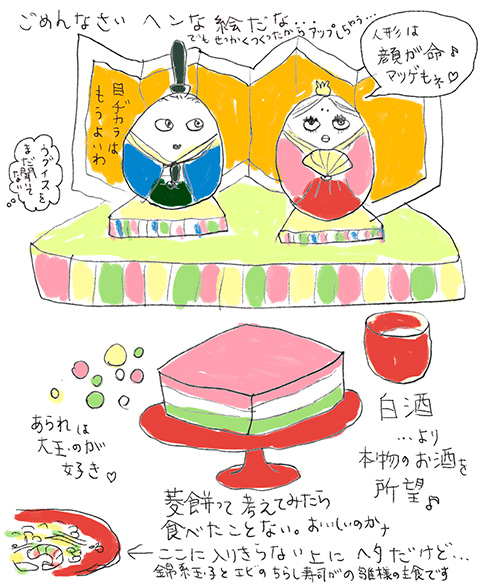 ごめんなさい ヘンな絵だな...
でもせっかくつくったからアップしちゃう...
人形は
顔が命♪
マツゲもネ♡
目ヂカラは
もうよいわ
ウグイスを
まだ聞いて
ない。
あられは
大玉のが
好き♡
白酒
...より
本物のお酒を
所望♪
菱餅って考えてみたら
食べたことない。おいしいのかナ
← ここに入りきらない上にヘタだけど...
錦糸玉子とエビのちらし寿司がの雛様の主食です